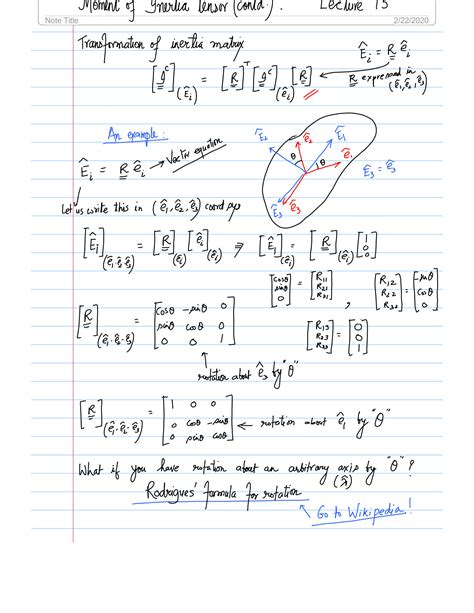 Moment of Inertia tensor (contd.). Lecture 15
Note Title 2/22/2020
Transformation of inertia matrix
Ê_i = R ê_i
[I^C]_(Ê_i) = [R]^T [I^C]_(ê_i) [R] ← R expressed in (ê_1, ê_2, ê_3)
An example:
Ê_2 ê_2 Ê_1
θ θ ê_1
Ê_3 ê_3
Ê_3 = ê_3
Ê_i = R ê_i → Vector equation
Let us write this in (ê_1, ê_2, ê_3) coord sys
[Ê_1]_(ê_1 ê_2 ê_3) = [R]_(ê_i) [ê_i]_(ê_i) ⇒ [Ê_1]_(ê_i) = [R]_(ê_i) [1 0 0]
[cosθ sinθ 0] = [R11 R21 R31] , [R12 R22 R32] = [-sinθ cosθ 0]
[R]_(ê_1-ê_2-ê_3) = [cosθ -sinθ 0
sinθ cosθ 0
0 0 1]
[R13 R23 R33] = [0 0 1]
rotation about ê_3 by "θ"
[R]_(ê_1-ê_2-ê_3) = [1 0 0
0 cosθ -sinθ
0 sinθ cosθ] ← rotation about ê_1 by "θ"
What if you have rotation about an arbitrary axis by "θ"?
(λ̂)
Rodrigues' formula for rotation
Go to Wikipedia!